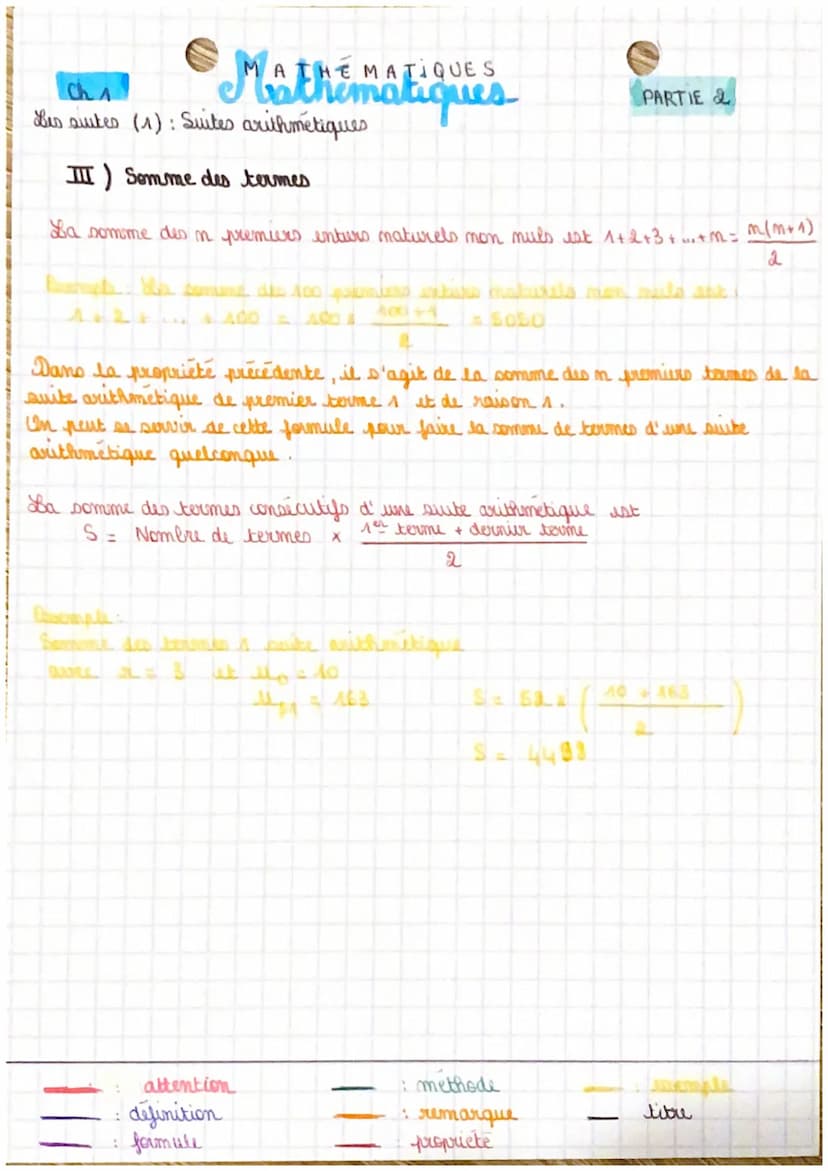 MATHÉMATIQUES
Mathématiques
Ch 1
PARTIE 2
Les suites (1) : Suites arithmétiques
III ) Somme des termes
La somme des n premiers entiers naturels non nuls est 1+2+3+...+n = n(n+1)/2
Exemple : La somme des 100 premiers entiers naturels non nuls est :
1 + 2 + ... + 100 = 100 x (100+1)/2 = 5050
Dans la propriété précédente, il s'agit de la somme des n premiers termes de la
suite arithmétique de premier terme 1 et de raison 1.
On peut se servir de cette formule pour faire la somme de termes d'une suite
arithmétique quelconque.
La somme des termes consécutifs d'une suite arithmétique est
S = Nombre de termes x (1er terme + dernier terme)/2
Exemple :
Somme des termes 1 suite arithmétique
avec r = 3 et u0 = 10
u51 = 163
S = 52 x ( (10 + 163)/2 )
S = 4498
: attention
: méthode
: exemple
: définition
: remarque
titre
: formule
: propriété